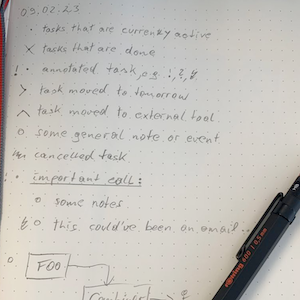 09.02.23
· tasks that are currently active
× tasks that are done
! · annotated task, e.g. !, ?,
> task moved to tomorrow
^ task moved to external tool
o some general note or event
cancelled task
· important call:
o some notes
o this could've been an email..
o FOO
rotring 600 | 0,5 mm